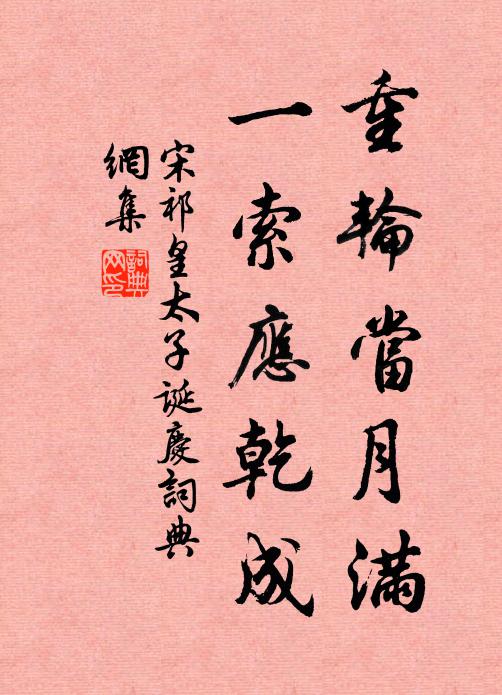 重輪當月滿
一索應乾成
宋祁皇太子誕慶詞典
網集
詞典
网印